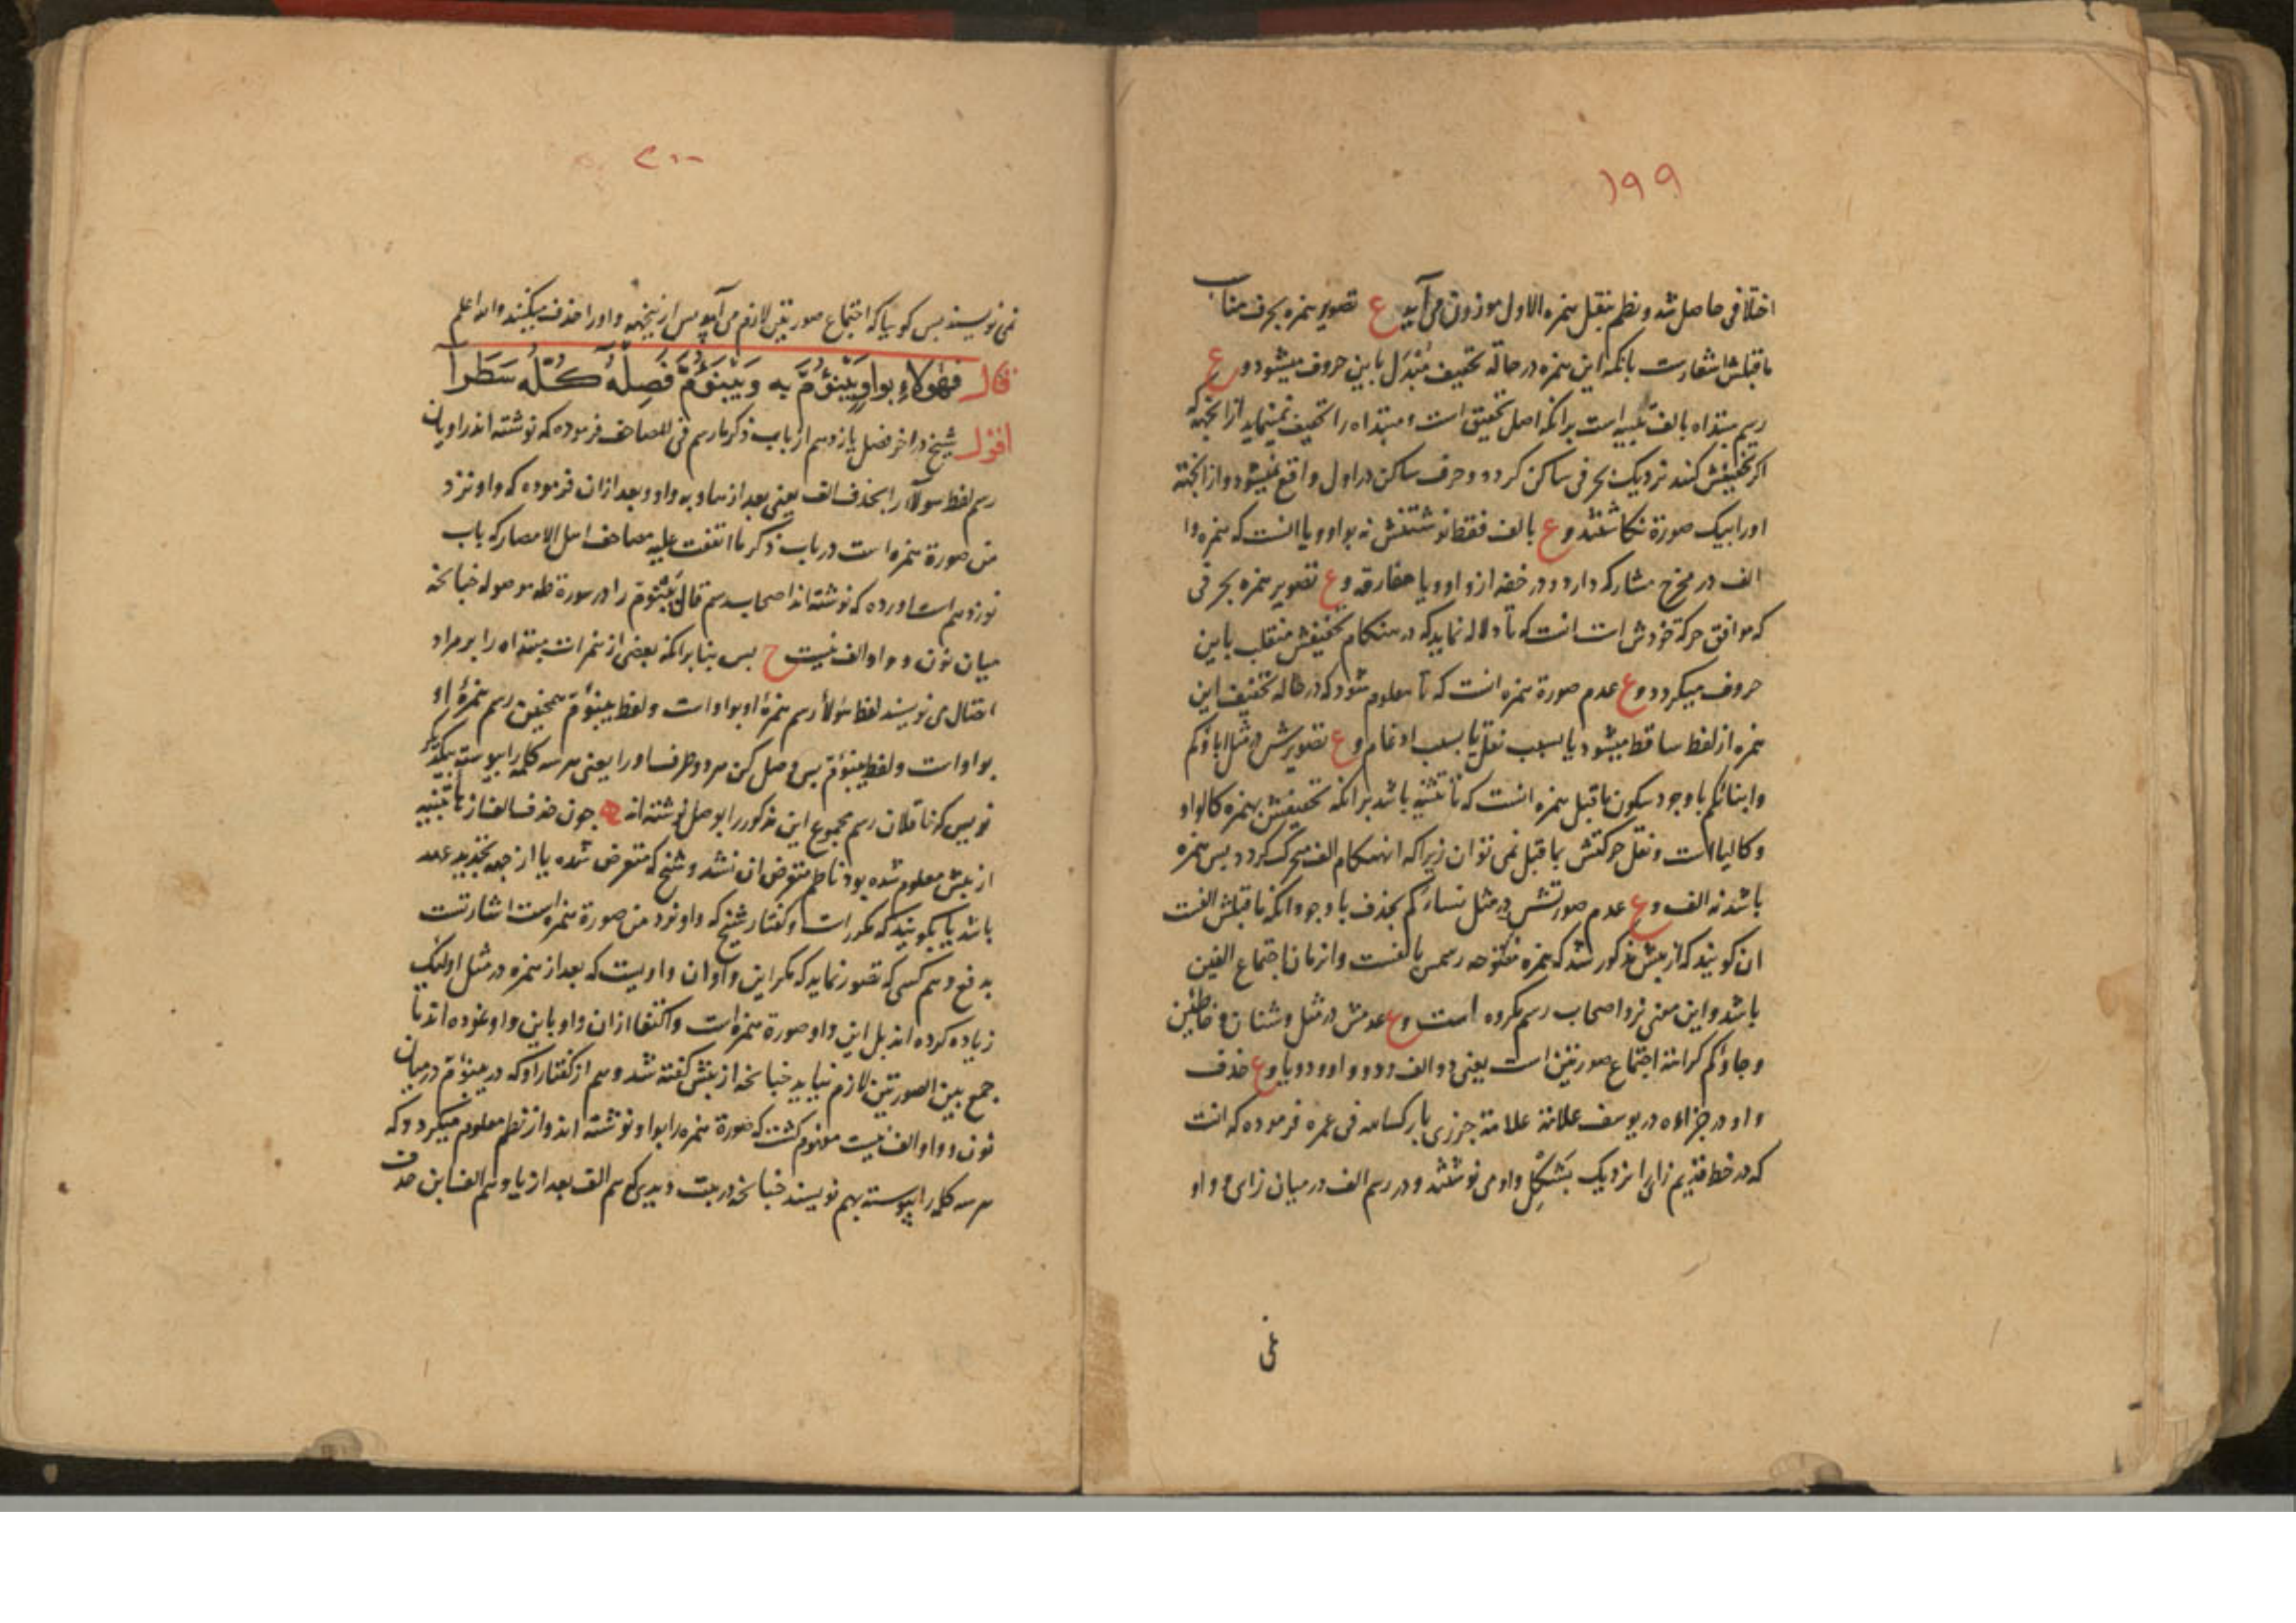 ۱۹۹
اختلافی حاصل شد و نظم بنقل همزه الاول موزون می آید ع تصویر همزه بحرف مناسب
ماقبلش اشعارست بانکه این همزه در حالة تخفیف مُبْدَل باین حروف میشود و ع
رسم مبتداه بالف تنبیه است برانکه اصل تحقیق است و مبتداه را تخفیف نمینماید از انجهة که
اکر تخفیفش کنند نزدیک بحرفی ساکن کردد و حرف ساکن در اول واقع نمیشود و از انجهة
اورا بیک صورة نکاشتند و ع بالف فقط نوشتنش نه بواو و یا انست که همزه وا
الف در مخرج مشارکه دارد و در خفه از واو و یا مفارقه و ع تصویر همزه بحرفی
که موافق حرکة خودش است انست که تا دلاله نماید که در هنکام تخفیفش منقلب باین
حروف میکردد و ع عدم صورة همزه انست که تا معلوم شود که در حاله تخفیف این
همزه از لفظ ساقط میشود یا بسبب نقل یا بسبب ادغام و ع تصویرش در مثل اباؤکم
وابنائکم با وجود سکون ماقبل همزه انست که تا تنبیه باشد برانکه تخفیفش بهمزه کالواو
وکالیا است و نقل حرکتش بما قبل نمی توان زیرا که انهنکام الف متحرک کردد بس همزه
باشد نه الف و ع عدم صورتش در مثل نساءکم بحذف با وجود انکه ماقبلش الفست
ان کویند که از بیش مذکور شد که همزه مفتوحه رسمش بالفست و انزمان اجتماع الفین
باشد و این معنی نزد اصحاب رسم مکروه است و ع عدمش در مثل و شنان و خاطئین
وجاؤکم کراهة اجتماع صورتین است یعنی دو الف و دو واو و دو یا و ع حذف
واو در جزاؤه در یوسف علامة علامة جزری بارک الله فی عمره فرموده که انست
که در خط قدیم زای را نزدیک بَشکِل واو می نوشتند و در رسم الف در میان زای و واو
نمی
۲۰۰
نمی نویسند بس کوییا که اجتماع صورتین لازم می آید پس ازینجهه واو را حذف میکنند والله اعلم
قال فهٰؤلاءِ بواوٍ يَبْنَؤُمَّ به ويَبْنَؤُمَّ فَصِلْهُ كُلَّهُ سَطَرا
اقول شیخ در اخر فصل یازدهم از باب ذکر ما رسم فی المصاحف فرموده که نوشته اند راویان
رسم لفظ هولاء را بحذف الف یعنی بعد از ها و به واو و بعد از ان فرموده که واو نزد
من صورة همزه است در باب ذکر ما اتفقت علیه مصاحف اهل الامصار که باب
نوزدهم است اورده که نوشته اند اصحاب رسم قال یَبْنَؤُمَّ را در سورة طه موصوله جنانجه
میان نون و واو الف نیست ح بس بنا برانکه بعضی از همزات مبتداه را بر مراد
اتصال می نویسند لفظ هؤلاء رسم همزۀ او بواو است و لفظ یبنؤمّ همجنین رسم همزۀ او
بواو است و لفظ یبنؤمّ بس وصل کن هر دو طرف اورا یعنی هر سه کلمه را بیوسته بیکدیگر
نویس که ناقلان رسم مجموع این مذکور را بوصل نوشته اند ه جون حذف الف از هاء تنبیه
از بیش معلوم شده بود ناظم متعرض ان نشد و شیخ که متعرض شده یا از جهة تجدید عهد
باشد یا بکویند که مکرر است و کفتار شیخ که واو نزد من صورة همزه است اشارتست
بدفع وهم کسی که تصور نماید که مکر این واو ان واویست که بعد از همزه در مثل اولئک
زیاده کرده اند بل این واو صورة همزه است و اکتفا از ان واو باین واو نموده اند تا
جمع بین الصورتین لازم نیاید جنانجه از بیش کفته شد و هم از کفتار او که در یبنؤمّ در میان
نون و واو الف نیست مفهوم کشت که صورة همزه را بواو نوشته اند و از نظم معلوم میکردد که
هر سه کلمه را پیوسته بهم نویسند جنانجه در بیت دیدی که هم الف بعد از یا و هم الف ابن حذف